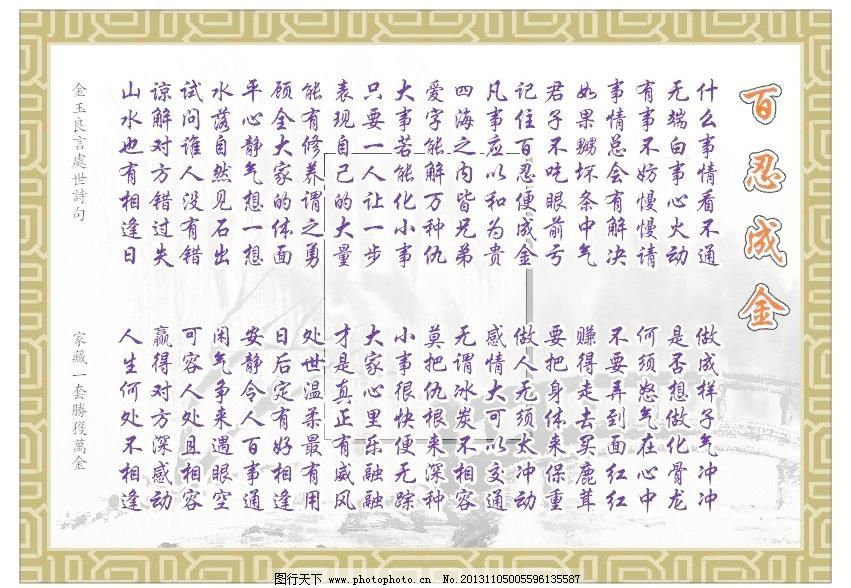 百忍成金
什么事情看不通
做成样子气冲冲
无端白事心火动
是否想做化骨龙
有事不妨慢慢请
何须怒气在心中
事情总会有解决
不要弄到面红红
如果嬲坏条中气
赚得走去买鹿茸
君子不吃眼前亏
要把身体来保重
记住百忍便成金
做人无须太冲动
凡事应以和为贵
感情大可以交通
四海之内皆兄弟
无谓冰炭不相容
爱字能解万种仇
莫把仇根来深种
大事若能化小事
小事很快便无踪
只要一人让一步
大家心里乐融融
表现自己的大量
才是真正有威风
能有修养谓之勇
处世温柔最有用
顾全大家的体面
日后定有好相逢
平心静气想一想
安静令人百事通
水落自然见石出
闲气争来遇眼空
试问谁人没有错
可容人处且相容
谅解对方错过失
赢得对方深感动
山水也有相逢日
人生何处不相逢
金玉良言處世詩句
家藏一套勝獲萬金
图行天下 www.photophoto.cn No.20131105005596135587